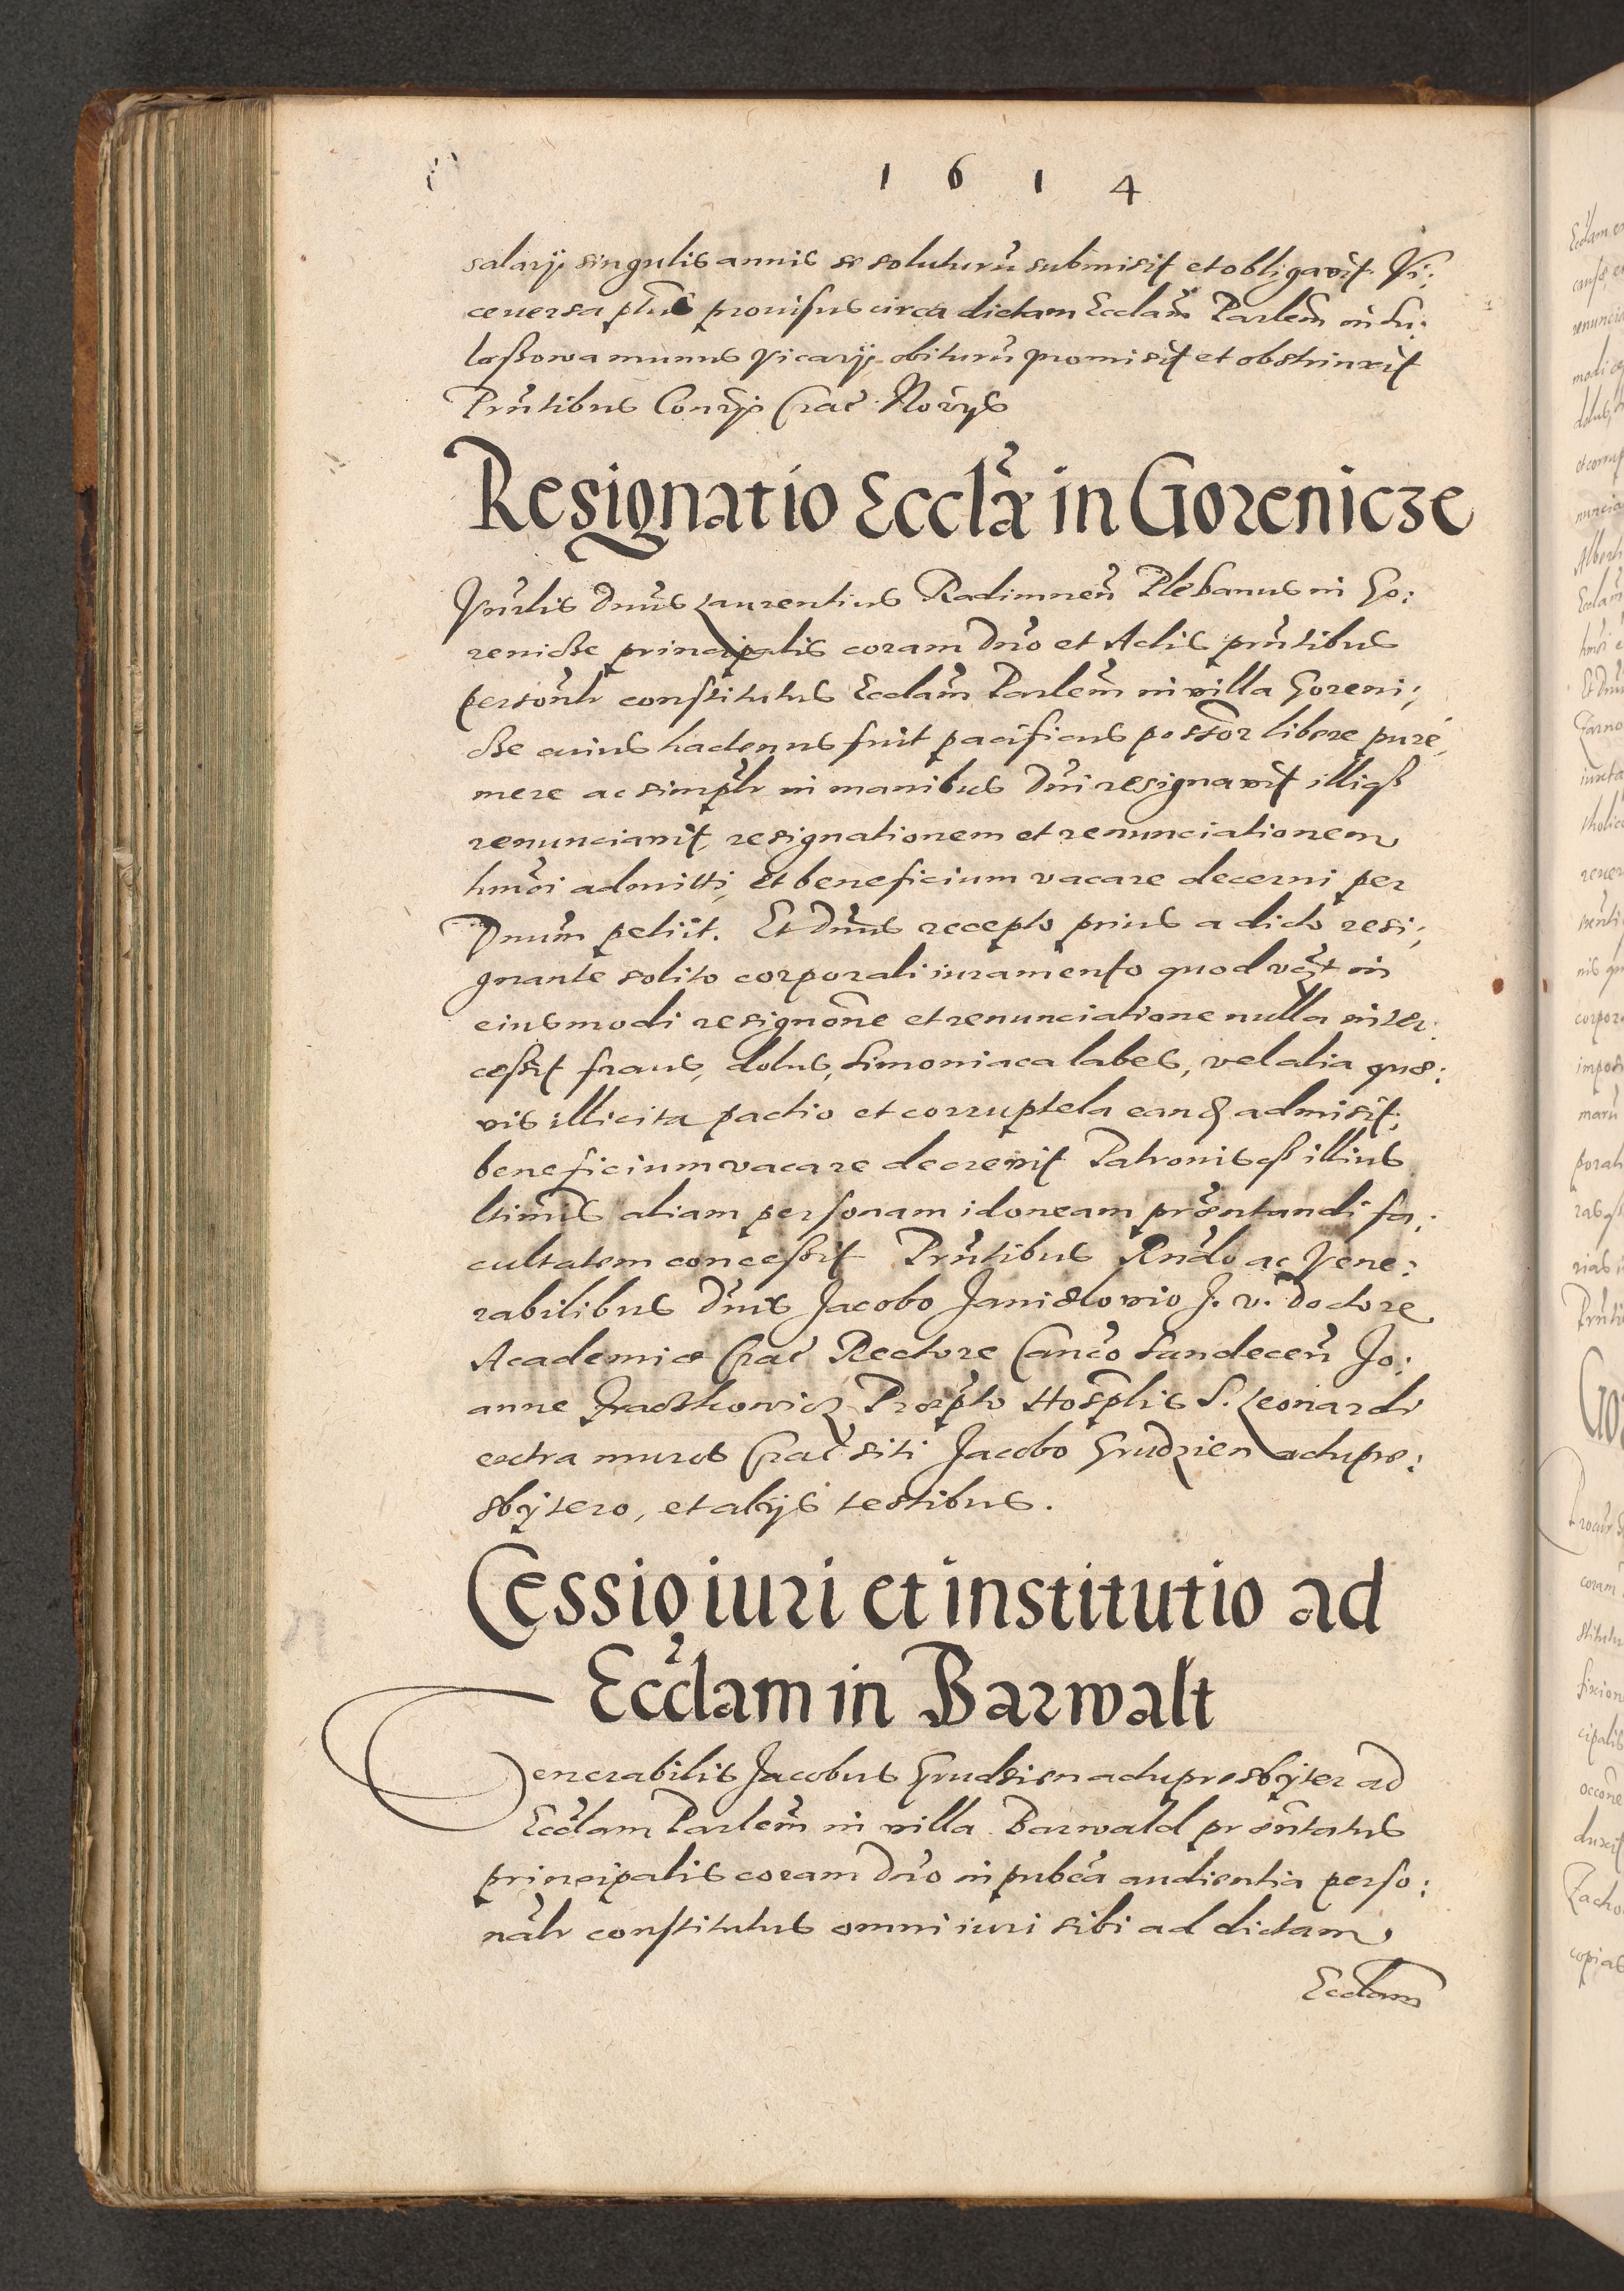 1 6 1 4
salarÿ singulis annis se soluturũ submisit et obligavit. Vi:
ceversa ptus provisus circa dictam Ecclãm Parlem̃ in Su:
loßowa munus vicarÿ obiturũ promisit et obstrinxit
Prñtibus Consrÿ Crac̃ Norÿs
Resignatio Ecclæ̃ in Gorenicze
Vnrlis Dnũs Laurentius Radimnen̂ Plebanus in Go:
renicze principalis coram Dnõ et Actis prñtibus
personlr constitutus Ecclãm Parlem̃ in villa Goreni:
cze cuius hactenus fuit pacificus possõr libere pure,
mere ac simplr in manibus Dñi resignavit illiqȝ
renunciavit resignationem et renunciationem
hmõi admitti, et beneficium vacare decerni per
Dnum petiit. Et Dnũs recepto prius a dicto resi:
gnante solito corporali iuramento quod vñt in
eiusmodi resignõne et renunciatione nulla inter:
cessit fraus, dolus, simoniaca labes, vel alia quæ:
vis illicita pactio et corruptela eandȝ admisit;
beneficium vacare decrevit Patronisqȝ illius
ltimis aliam personam idoneam præ̃ntandi fa:
cultatem concessit Prñtibus Rndo ac Vene:
rabilibus Dnis Jacobo Janidlovio J. V. Doctore
Academiæ Crac̃ Rectore Canco Sandecen̂ Jo:
anne Praepto Hosplis S. Leonardi
extra muros Crac̃ siti Jacobo Grudzien actupre:
sbÿtero, et alÿs testibus.
Cessio iuri et institutio ad
Ecclam in Barwalt
Venerabilis Jacobus Grudsien actupresbÿter ad
Ecclam Parlem̃ in villa Barwald præ̃ntatus
principalis coram Dnõ in pubcã audientia perso:
nalr constitutus omni iuri sibi ad dictam
Ecclam